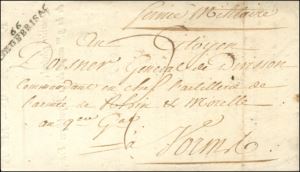 66
Service Militaire
Au Citoyen
Général de Division
Commandant en chef l'artillerie de
l'armée de Rhin & Moselle
au qer Gal
à Worms